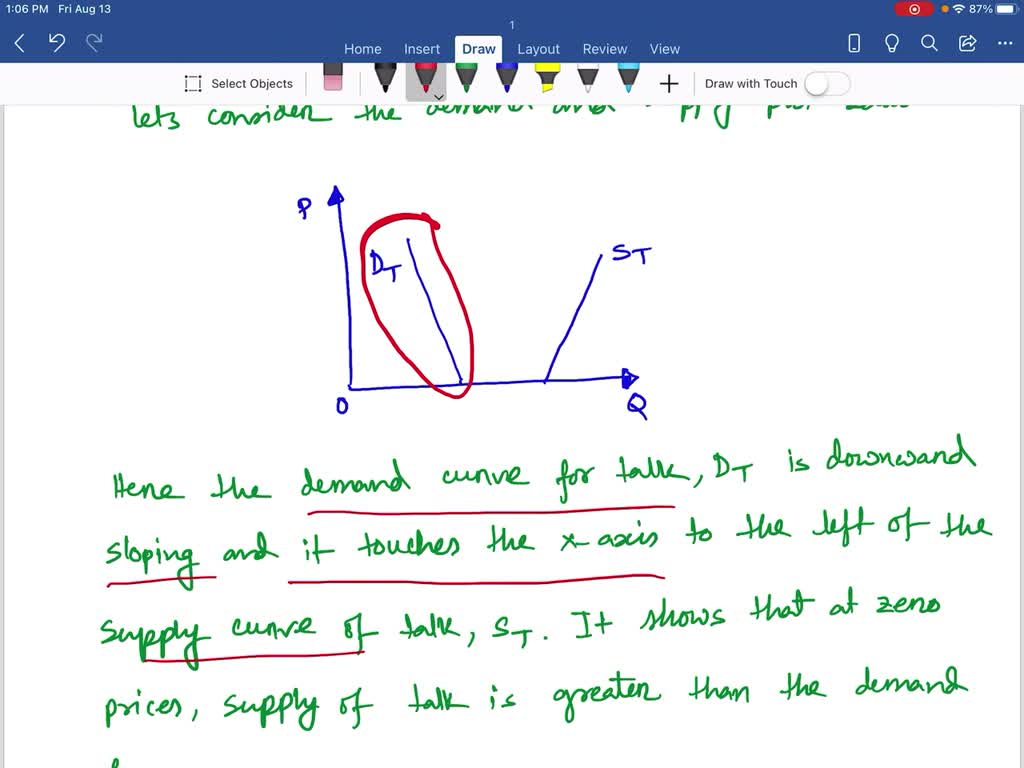 1:06 PM Fri Aug 13 87%
1
Home Insert Draw Layout Review View
Select Objects Draw with Touch
lets consider the demand and
P
DT
ST
O
Q
Here the demand curve for talk, DT is downward
sloping and it touches the x-axis to the left of the
supply curve of talk, ST. It shows that at zero
prices, supply of talk is greater than the demand